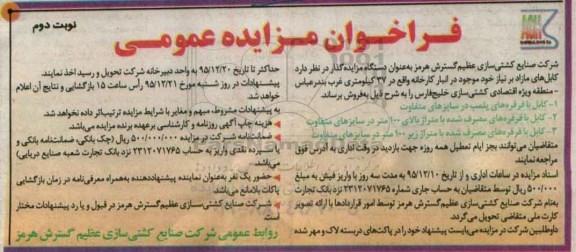 نوبت دوم
فراخوان مزایده عمومی
شرکت صنایع کشتی‌سازی عظیم‌گسترش هرمز به‌عنوان دستگاه مزایده‌گذار در نظر دارد
کابل‌های مازاد بر نیاز خود موجود در انبار کارخانه واقع در ۳۷ کیلومتری غرب بندرعباس
- منطقه ویژه اقتصادی کشتی‌سازی خلیج‌فارس را به شرح ذیل به‌فروش برساند.
۱- کابل با قرقره‌های پلمپ در سایزهای متفاوت
۲- کابل با قرقره‌های مصرف شده با متراژ بالای ۱۰۰ متر در سایزهای متفاوت
۳- کابل با قرقره‌های مصرف شده با متراژ زیر ۱۰۰ متر در سایزهای متفاوت
متقاضیان می‌توانند بجز ایام تعطیل همه روزه جهت بازدید در وقت اداری به آدرس فوق
مراجعه نمایند.
اسناد مزایده در ساعات اداری و از تاریخ ۹۵/۱۲/۱۰ به مدت سه روز با واریز فیش به مبلغ
۵۰۰/۰۰۰ ریال توسط متقاضیان به حساب جاری شماره ۲۳۱۲۰۷۱۷۶۵ نزد بانک تجارت
به‌نام شرکت صنایع کشتی‌سازی عظیم‌گسترش هرمز توسط امور قراردادها با ارائه تصویر
کارت ملی متقاضی تحویل می‌گردد.
داوطلبین شرکت در مزایده می‌بایست پیشنهاد خود را در پاکت‌های دربسته لاک و مهر شده
حداکثر تا تاریخ ۹۵/۱۲/۲۰ به واحد دبیرخانه شرکت تحویل و رسید اخذ نمایند.
پیشنهادات در روز شنبه مورخ ۹۵/۱۲/۲۱ رأس ساعت ۱۵ بازگشایی و نتایج آن اعلام
خواهد شد.
به پیشنهادات مشروط، مبهم و مغایر با شرایط مزایده ترتیب‌اثر داده نخواهد شد.
هزینه چاپ آگهی روزنامه و کارشناسی برعهده برنده مزایده می‌باشد.
ضمانت‌نامه شرکت در مزایده ۵۰۰/۰۰۰/۰۰۰ ریال (چک بانکی، ضمانتنامه بانکی و
یا سپرده نقدی واریز به حساب ۲۳۱۲۰۷۱۷۶۵ نزد بانک تجارت شعبه صنایع دریایی)
می‌باشد.
حضور یک نفر به‌عنوان نماینده پیشنهاددهنده به‌همراه معرفی‌نامه در زمان بازگشایی
پاکات بلامانع می‌باشد.
شرکت صنایع کشتی‌سازی عظیم‌گسترش هرمز در قبول و یا رد پیشنهادات مختار
است.
روابط عمومی شرکت صنایع کشتی سازی عظیم گسترش هرمز